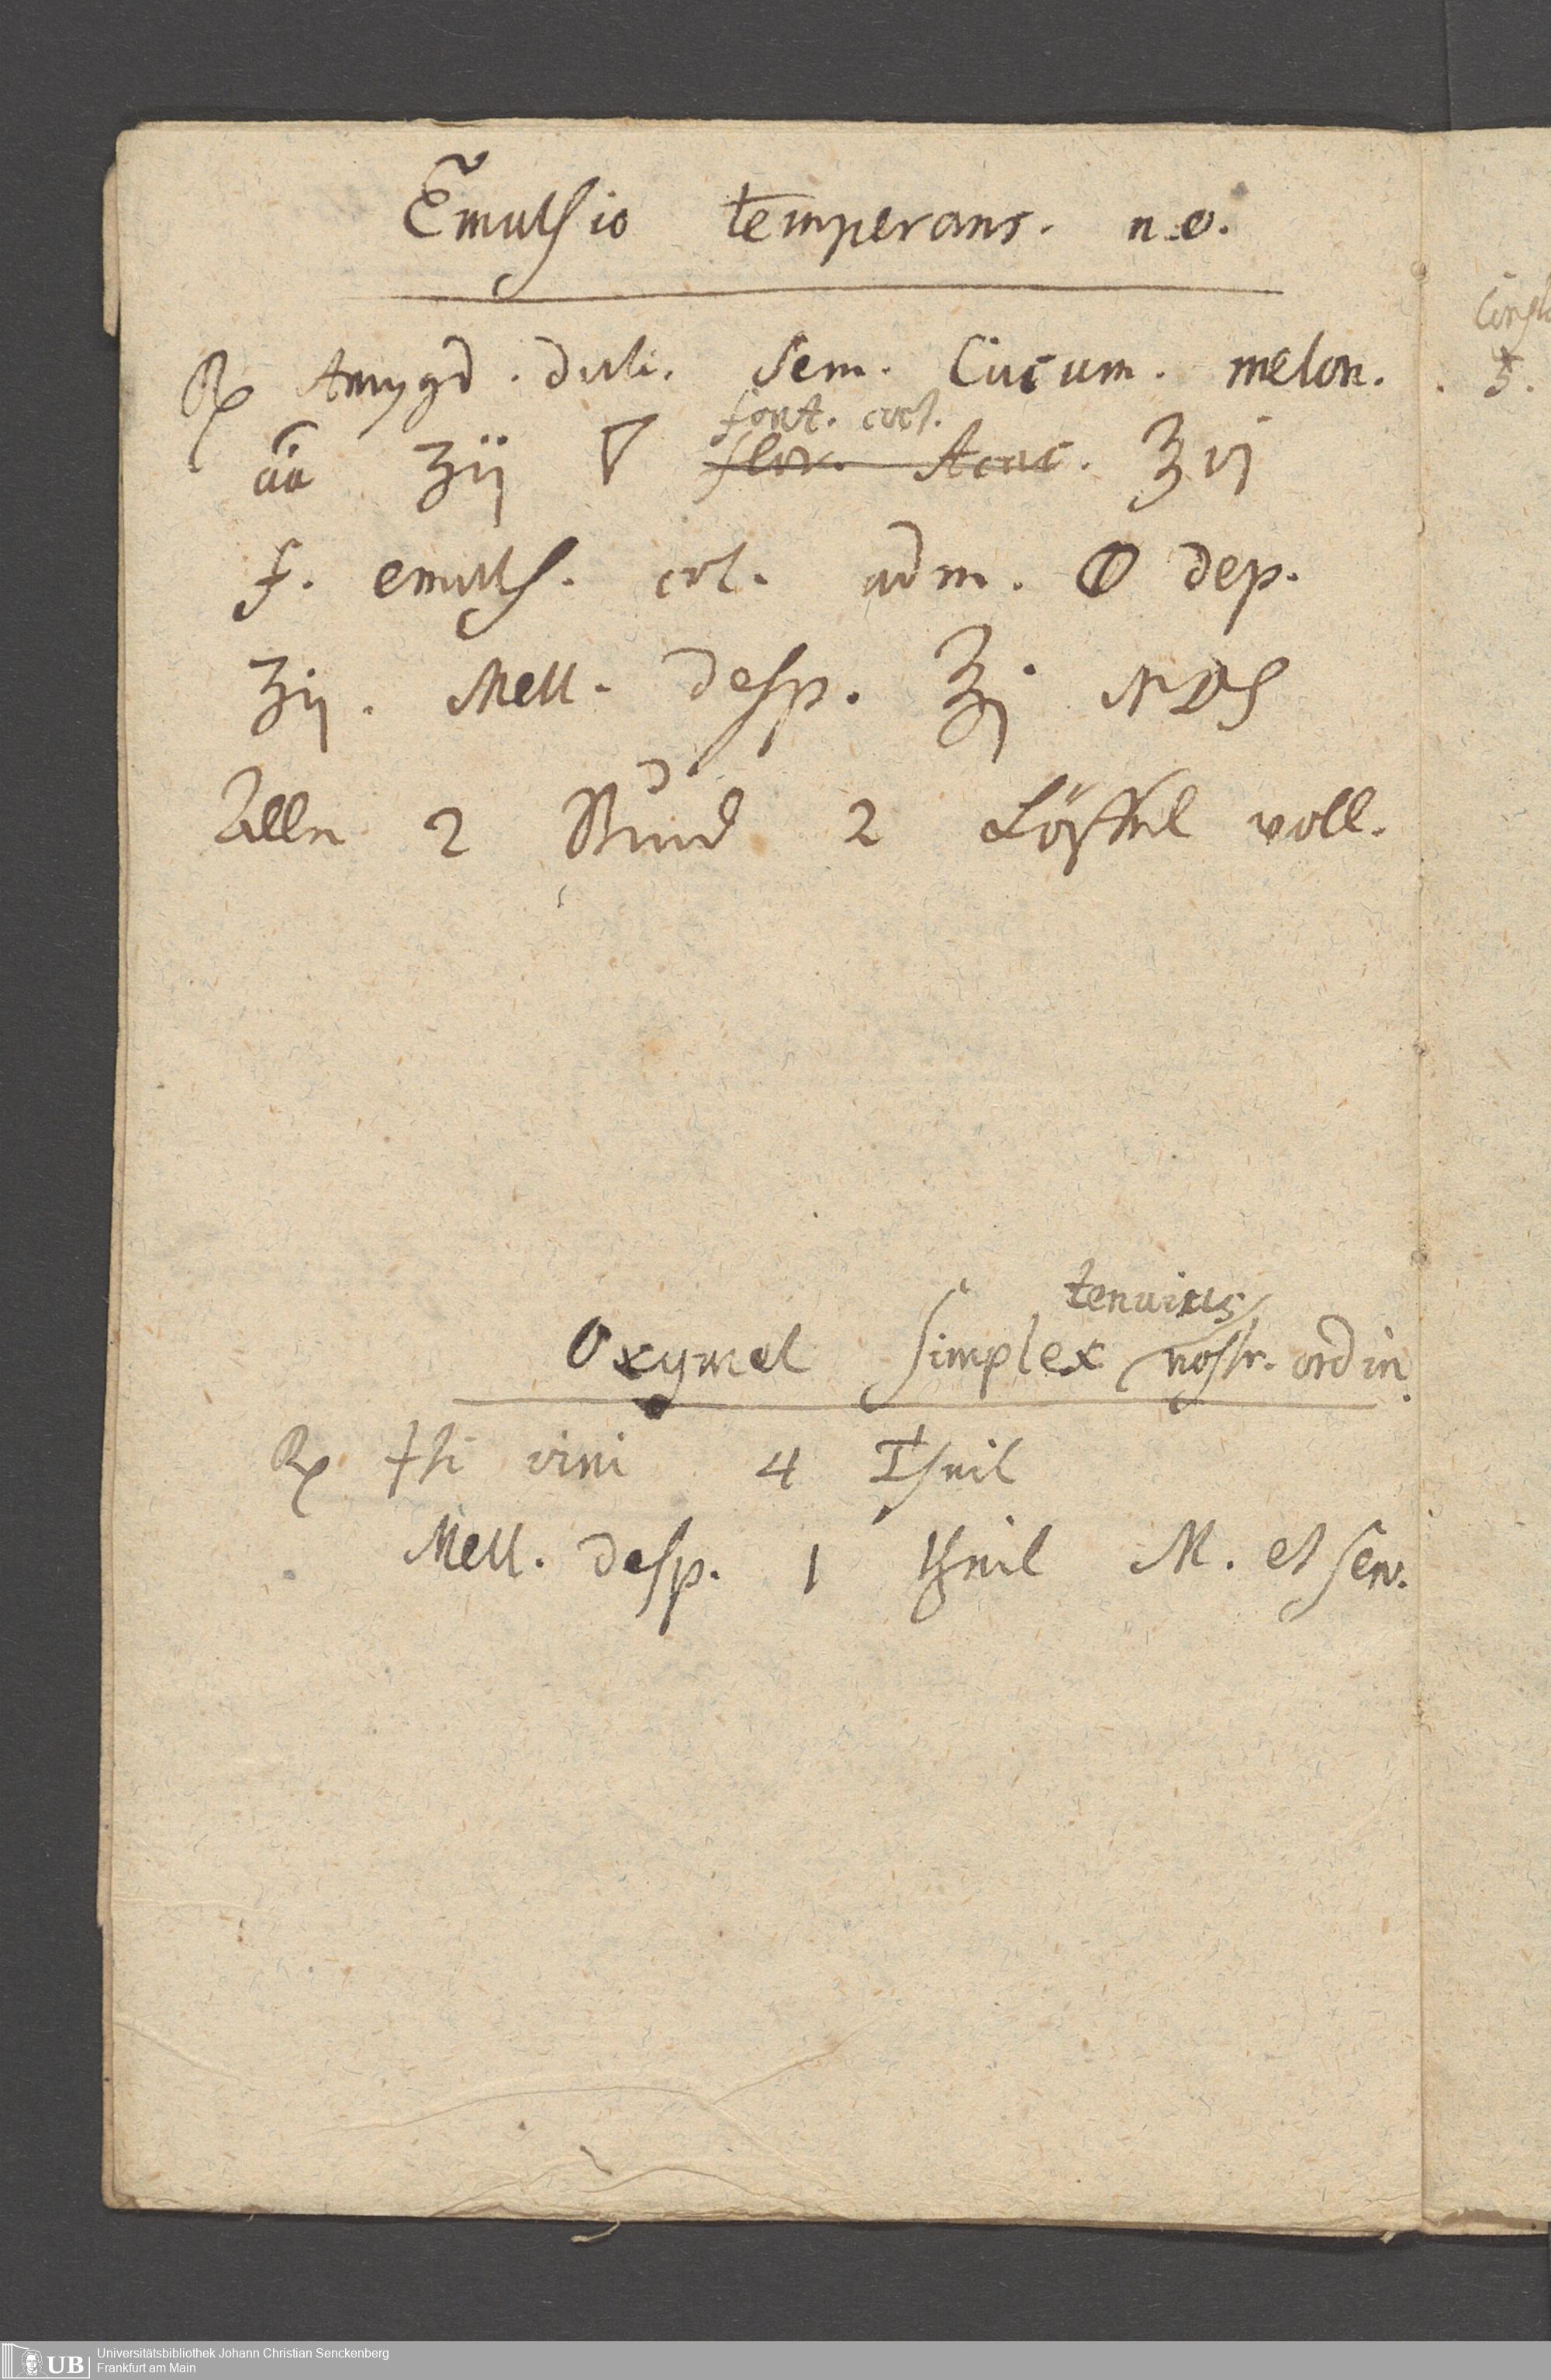 Emulsio temperans. n. o.
℞ Amygd. dulc. Sem. Cucum. melon.
font. coct.
āā ʒij 🜄 flor. Acac. ℥vj
f. emuls. col. adm. 🜕 dep.
ʒij. Mell. desp. ℥j MDS
Alle 2 Stund 2 Löffel voll.
tenuius
Oxymel simplex nostr. ordin.
℞ 🜊ti vini 4 Theil
Mell. desp. 1 theil M. et serv.
Universitätsbibliothek Johann Christian Senckenberg
UB Frankfurt am Main